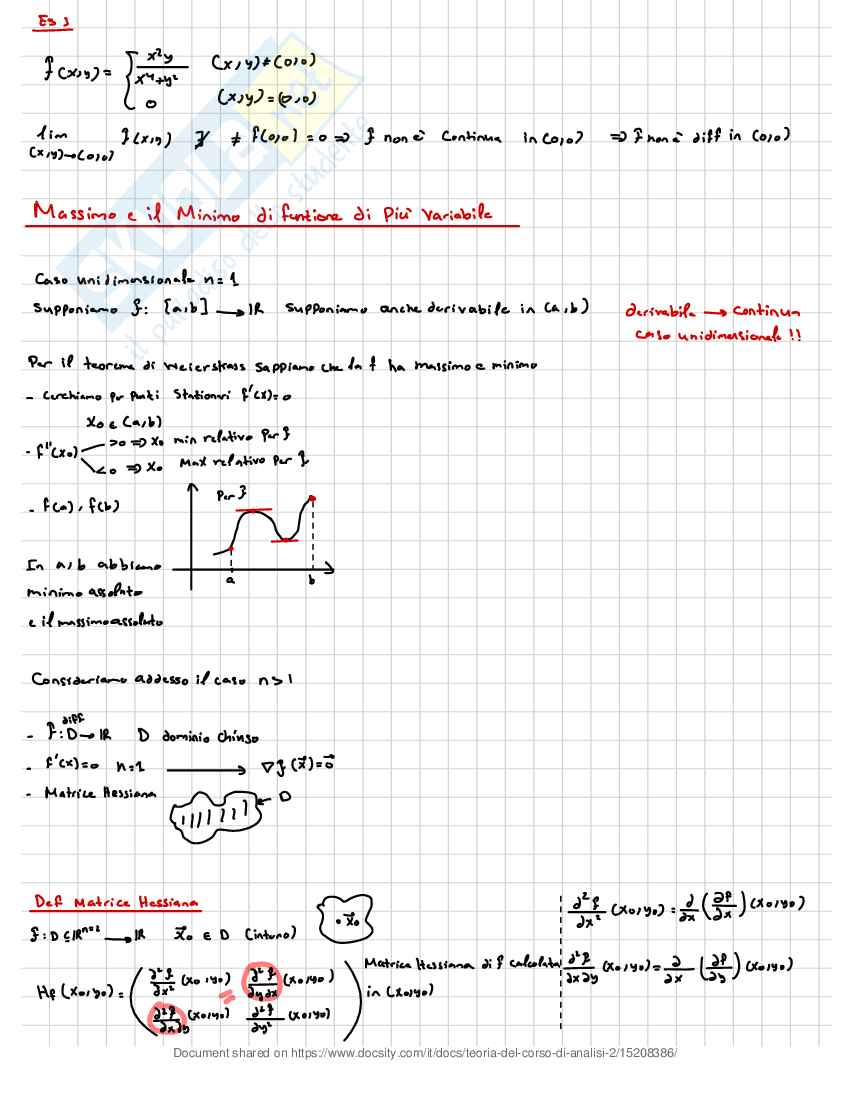 Es 3
f(x,y) = { x²y / x⁴+y² (x,y)≠(0,0)
0 (x,y)=(0,0)
lim (x,y)→(0,0) f(x,y) ∄ ≠ f(0,0) = 0 ⇒ f non è continua in (0,0) ⇒ f non è diff in (0,0)
Massimo e il Minimo di funzione di Più Variabile
Caso unidimensionale n=1
Supponiamo f: [a,b] → IR Supponiamo anche derivabile in (a,b)
derivabile → continua
caso unidimensionale !!
Per il teorema di Weierstrass sappiamo che la f ha massimo e minimo
- Cerchiamo per punti stazionari f'(x)=0
x₀ ∈ (a,b)
- f''(x₀) >0 ⇒ x₀ min relativo per f
<0 ⇒ x₀ max relativo per f
- f(a), f(b)
Per f
a b
In a,b abbiamo
minimo assoluto
e il massimo assoluto
Consideriamo adesso il caso n>1
diff
- f: D → IR D dominio chiuso
- f'(x)=0 n=1 → ∇f(x⃗)=0⃗
- Matrice Hessiana
D
Def Matrice Hessiana
f: D ⊆ IRⁿ⁼² → IR x⃗₀ ∈ D (intuno)
x⃗₀
Hf(x₀,y₀) = ( ∂²f/∂x² (x₀,y₀) = ∂²f/∂y∂x (x₀,y₀)
∂²f/∂x∂y (x₀,y₀) ∂²f/∂y² (x₀,y₀) )
Matrice Hessiana di f calcolata
in (x₀,y₀)
∂²f/∂x² (x₀,y₀) = ∂/∂x (∂f/∂x) (x₀,y₀)
∂²f/∂x∂y (x₀,y₀) = ∂/∂x (∂f/∂y) (x₀,y₀)
Document shared on https://www.docsity.com/it/docs/teoria-del-corso-di-analisi-2/15208386/